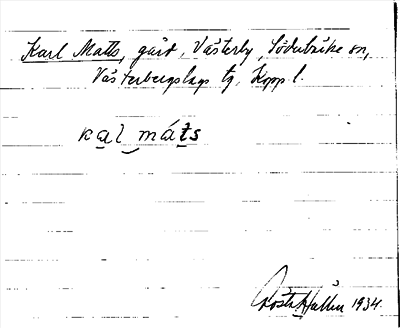 Karl Matts, gård, Västerby, Söderbärke sn,
Västerbergslags tg, Kopp l.
kal máts
Gösta Hallin 1934.